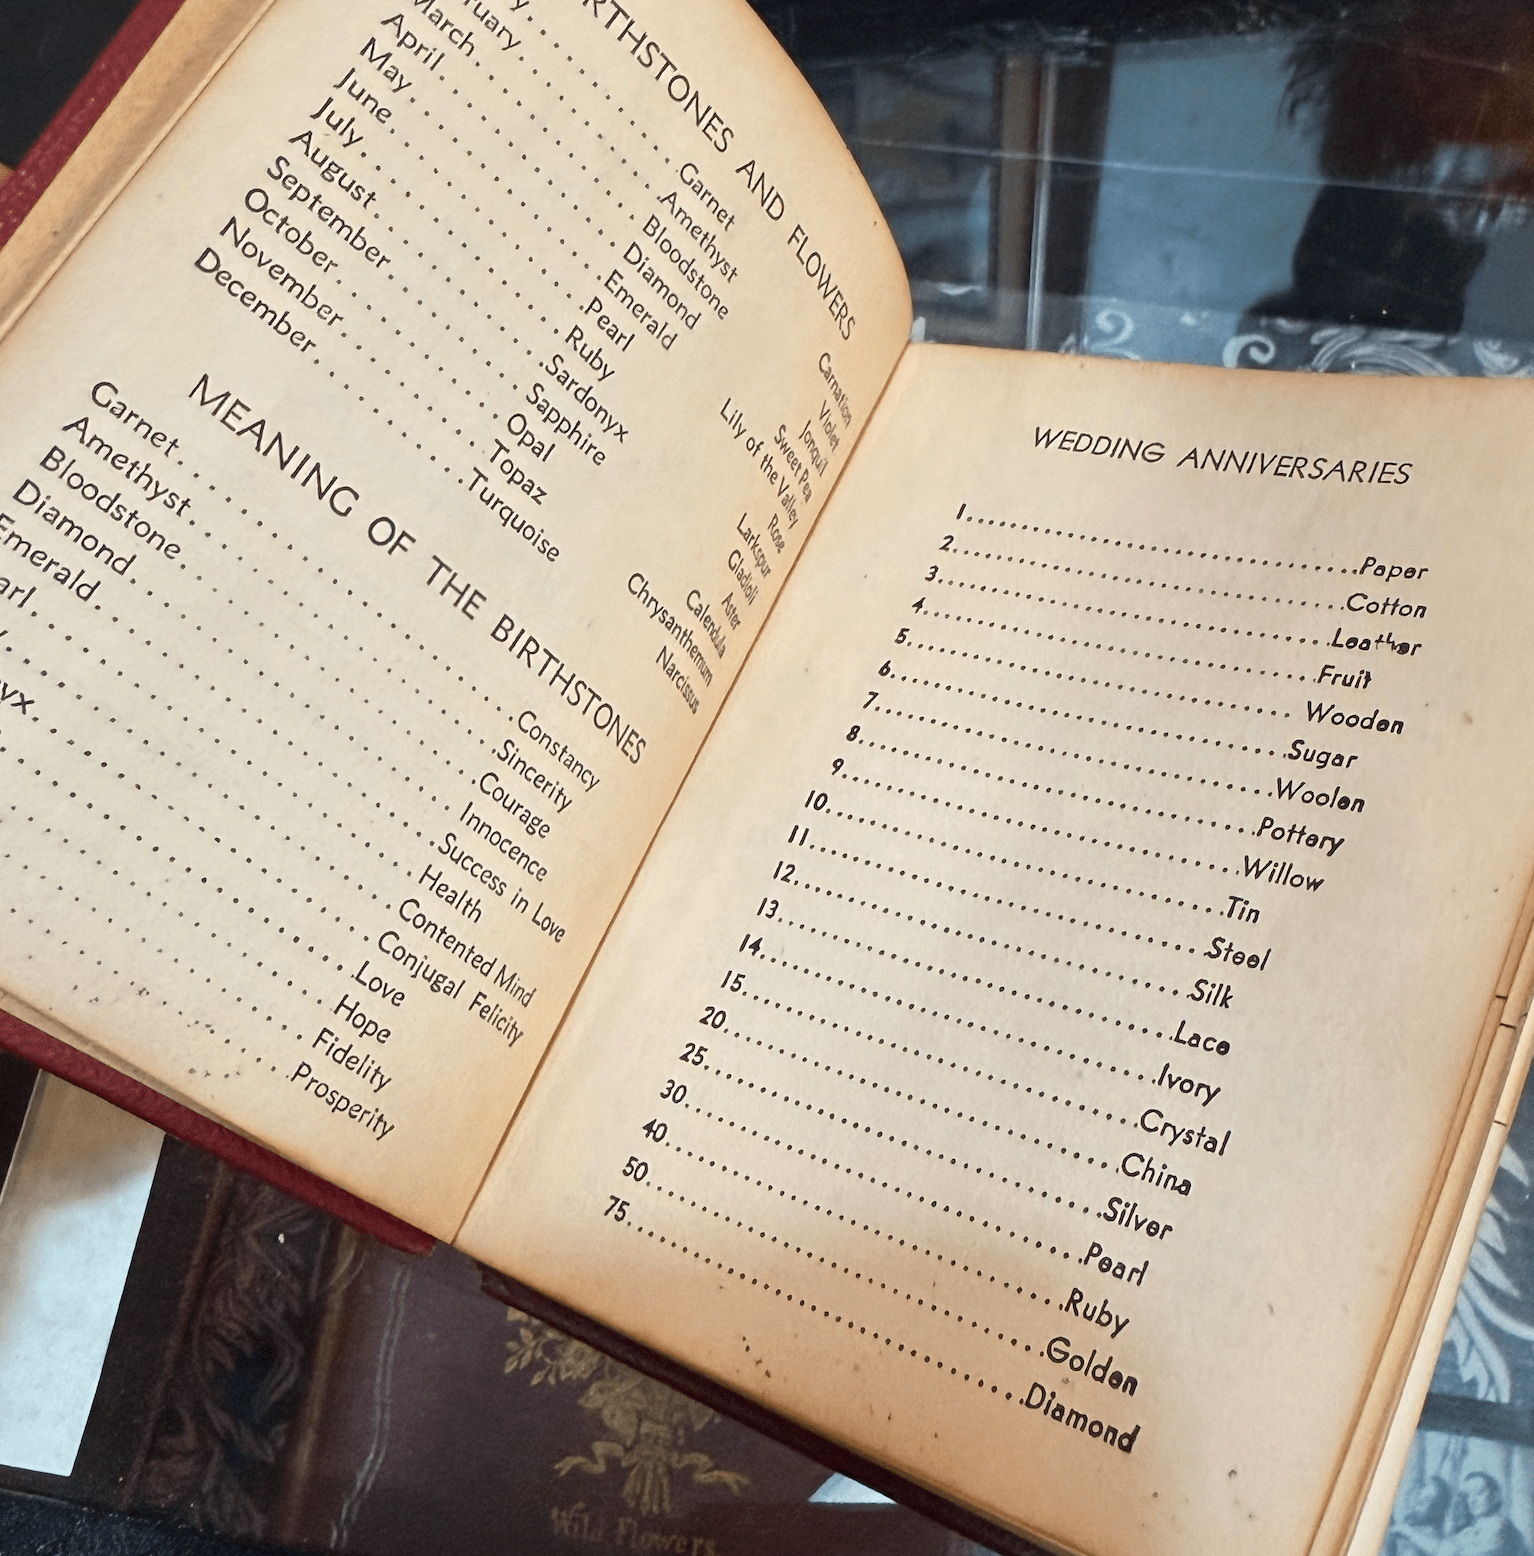 RTHSTONES AND FLOWERS
y.....Garnet Carnation
ruary.....Amethyst Violet
March.....Bloodstone Jonquil
April.....Diamond Sweet Pea
May.....Emerald Lily of the Valley
June.....Pearl Rose
July.....Ruby Larkspur
August.....Sardonyx Gladioli
September.....Sapphire Aster
October.....Opal Calendula
November.....Topaz Chrysanthemum
December.....Turquoise Narcissus
MEANING OF THE BIRTHSTONES
Garnet.....Constancy
Amethyst.....Sincerity
Bloodstone.....Courage
Diamond.....Innocence
Emerald.....Success in Love
arl.....Health
y.....Contented Mind
yx.....Conjugal Felicity
.....Love
.....Hope
.....Fidelity
.....Prosperity
WEDDING ANNIVERSARIES
1.....Paper
2.....Cotton
3.....Leather
4.....Fruit
5.....Wooden
6.....Sugar
7.....Woolen
8.....Pottery
9.....Willow
10.....Tin
11.....Steel
12.....Silk
13.....Lace
14.....Ivory
15.....Crystal
20.....China
25.....Silver
30.....Pearl
40.....Ruby
50.....Golden
75.....Diamond
Wild Flowers